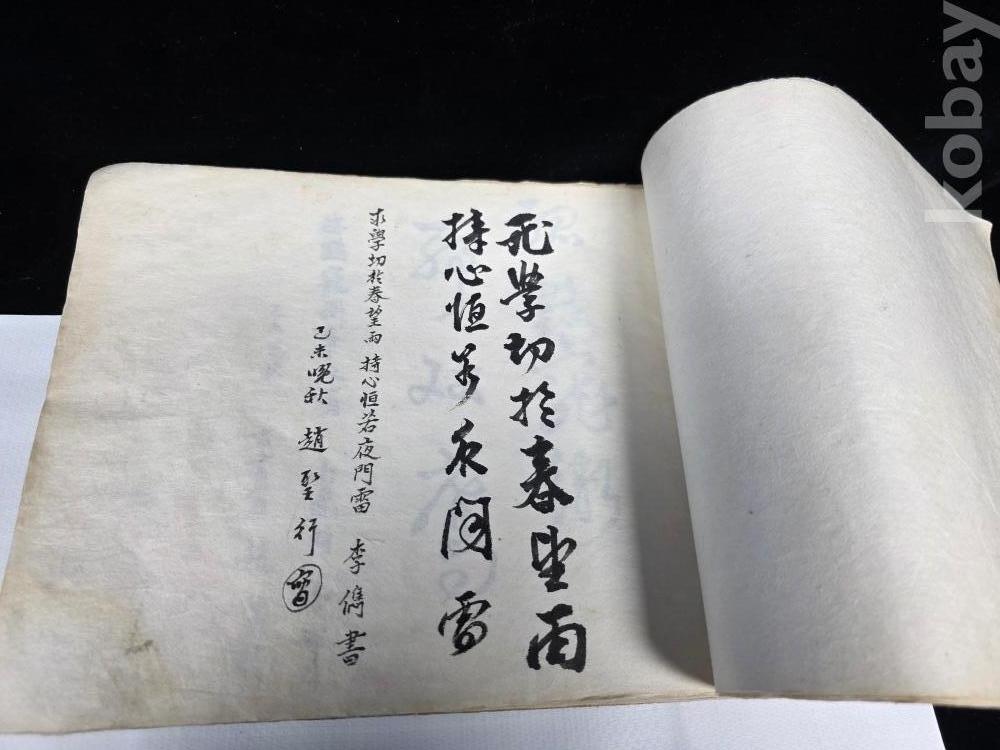 求學切於春望雨
持心恒若夜聞雷
求學切於春望雨 持心恒若夜門雷 李儁書
己未晩秋 趙聖行
kobay